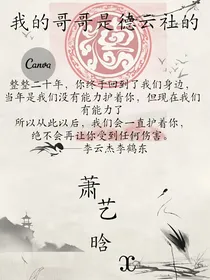 我的哥哥是德云社的
Canva
整整二十年，你终于回到了我们身边，
当年是我们没有能力护着你，但现在我们
有能力了
所以从此以后，我们会一直护着你，
绝不会再让你受到任何伤害。
——李云杰李鹤东
萧艺晗
x